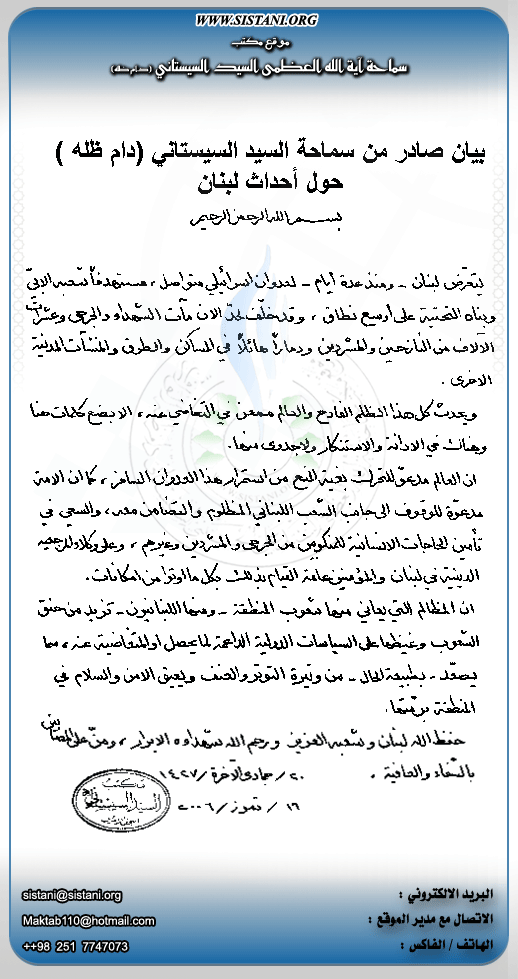 WWW.SISTANI.ORG
موقع مكتب
سماحة آية الله العظمى السيد السيستاني (دام ظله)
بيان صادر من سماحة السيد السيستاني (دام ظله )
حول أحداث لبنان
بسم الله الرحمن الرحيم
يتعرّض لبنان - ومنذ عدة أيام - لعدوان اسرائيلي متواصل ، مستهدفاً شعبه الابيّ
وبناه التحتية على أوسع نطاق ، وقد خلّف لحدّ الآن مآت الشهداء والجرحى وعشرات
الآلاف من النازحين والمشردين ودماراً هائلاً في المساكن والطرق والمنشآت المدنية
الاخرى .
ويحدث كل هذا الظلم الفادح والعالم ممعن في التغاضي عنه ، الا بضع كلمات هنا
وهناك في الادانة والاستنكار ولا جدوى منها .
ان العالم مدعوّ للتحرك بغية المنع من استمرار هذا العدوان السافر ، كما ان الامة
مدعوّة للوقوف الى جانب الشعب اللبناني المظلوم والتضامن معه ، والسعي في
تأمين الحاجات الانسانية للمنكوبين من الجرحى والمشردين وغيرهم ، وعلى وكلاء المرجعية
الدينية في لبنان والمؤمنين عامة القيام بذلك بكل ما اوتوا من امكانات .
ان المظالم التي يعاني منها شعوب المنطقة - ومنها اللبنانيون - تزيد من حنق
الشعوب وغيظها على السياسات الدولية الداعمة لما يحصل او المتغاضية عنه ، مما
يصعّد - بطبيعة الحال - من وتيرة التوتر والعنف ويعيق الامن والسلام في
المنطقة برمّتها .
حفظ الله لبنان وشعبه العزيز ورحم الله شهداءه الابرار ، ومنّ على المصابين
بالشفاء والعافية .
٢٠ / جمادى الآخرة / ١٤٢٧
١٦ / تموز / ٢٠٠٦
مكتب
السيد السيستاني
النجف الاشرف
البريد الالكتروني : sistani@sistani.org
الاتصال مع مدير الموقع : Maktab110@hotmail.com
الهاتف / الفاكس : ++98 251 7747073